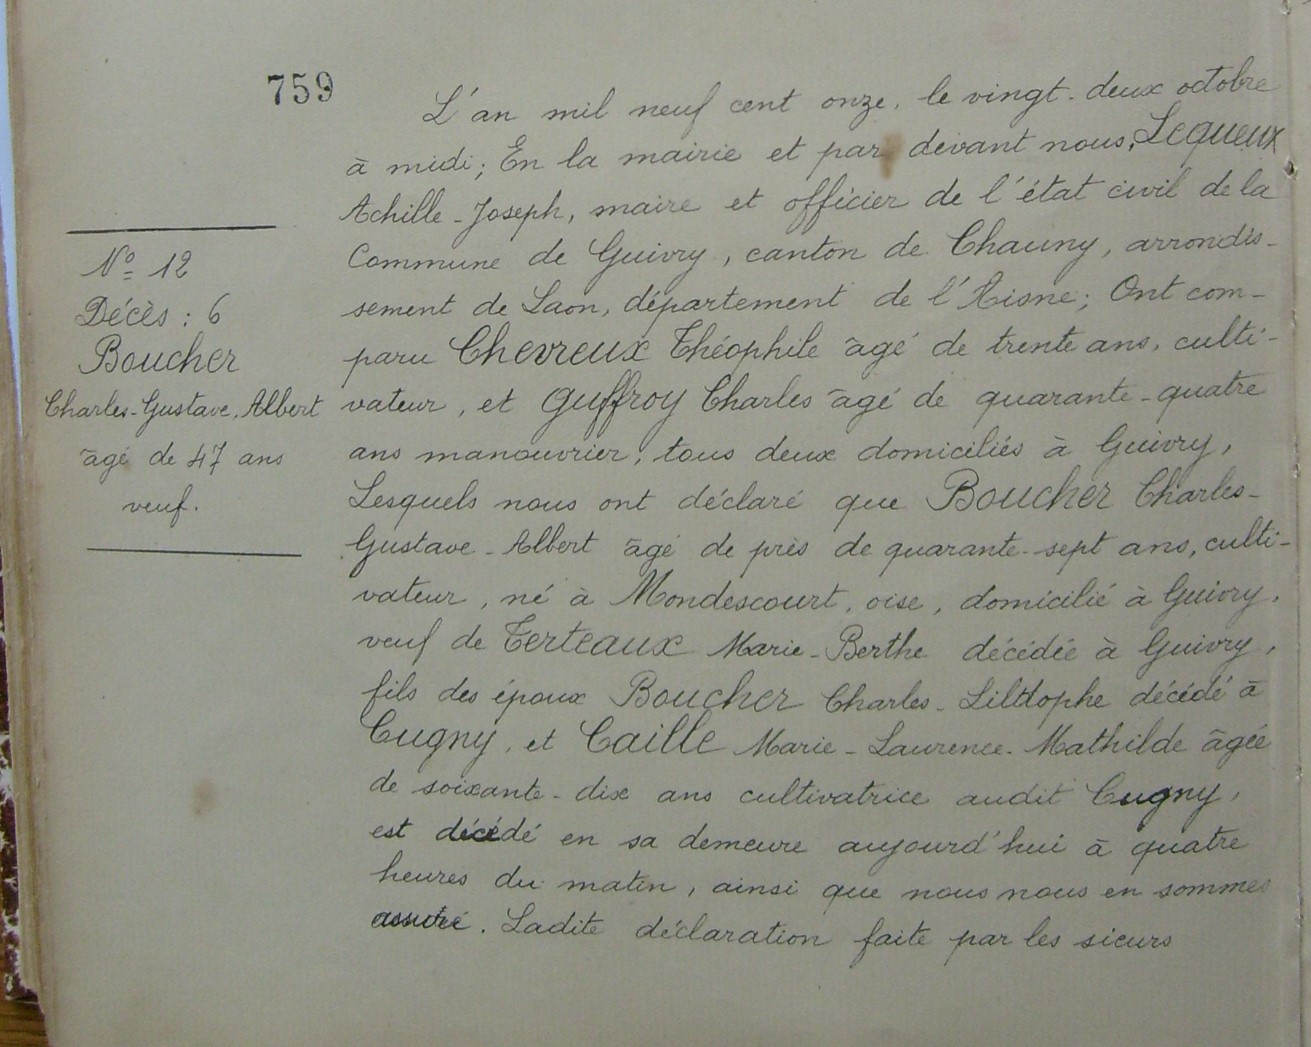 759
L'an mil neuf cent onze, le vingt-deux octobre
à midi; En la mairie et par devant nous, Lequeux
Achille-Joseph, maire et officier de l'état civil de la
Commune de Guivry, canton de Chauny, arrondis-
sement de Laon, département de l'Aisne; Ont com-
paru Chevreux Théophile âgé de trente ans, culti-
vateur, et Guffroy Charles âgé de quarante-quatre
ans manouvrier, tous deux domiciliés à Guivry,
Lesquels nous ont déclaré que Boucher Charles-
Gustave-Albert âgé de près de quarante-sept ans, culti-
vateur, né à Mondescourt, oise, domicilié à Guivry,
veuf de Terteaux Marie-Berthe décédée à Guivry,
fils des époux Boucher Charles- décédé à
Cugny, et Caille Marie-Laurence-Mathilde âgée
de soixante-dix ans cultivatrice audit Cugny,
est décédé en sa demeure aujourd'hui à quatre
heures du matin, ainsi que nous nous en sommes
assuré. Ladite déclaration faite par les sieurs
Nº 12
Décès : 6
Boucher
Charles-Gustave, Albert
âgé de 47 ans
veuf.